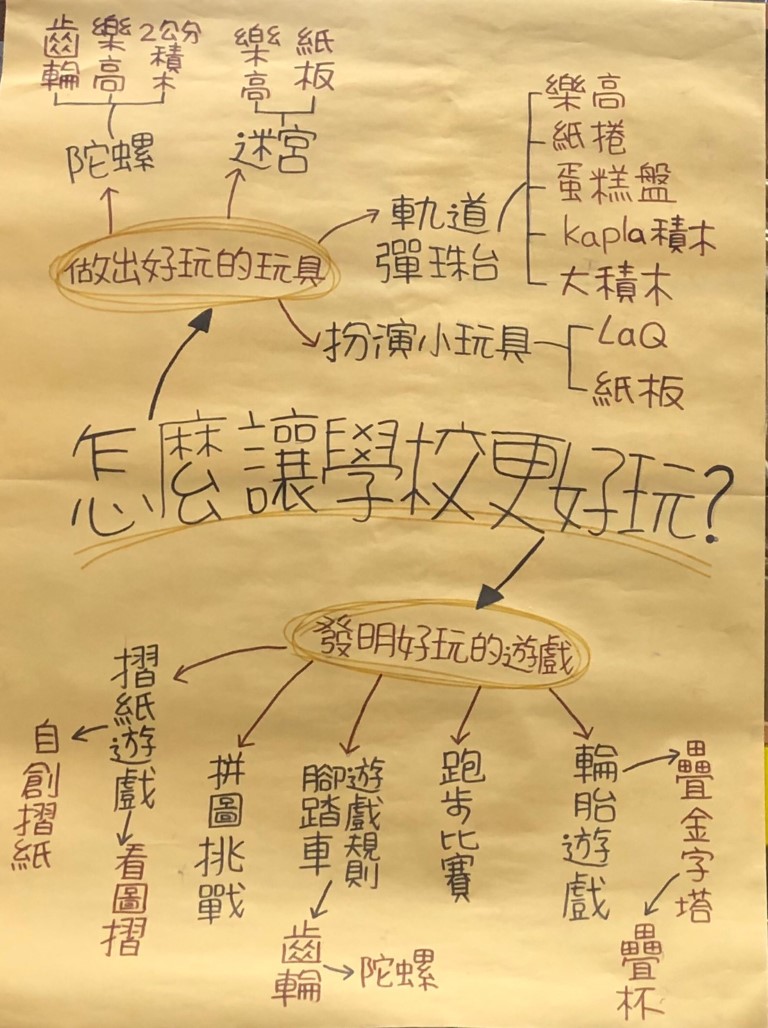 齒輪
樂高
2公分積木
樂高
紙板
陀螺
迷宮
樂高
紙捲
蛋糕盤
kapla積木
大積木
軌道
彈珠台
做出好玩的玩具
扮演小玩具
LaQ
紙板
怎麼讓學校更好玩?
發明好玩的遊戲
摺紙遊戲
自創摺紙
看圖摺
拼圖挑戰
腳踏車
遊戲規則
齒輪
陀螺
跑步比賽
輪胎遊戲
疊金字塔
疊杯